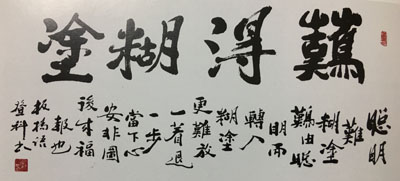 難得糊塗
聰明
難
糊塗
難由聰
明而
轉入
糊塗
更難放
一着退
一步
當下心
安非圖
後來福
報也
板橋語
登科书